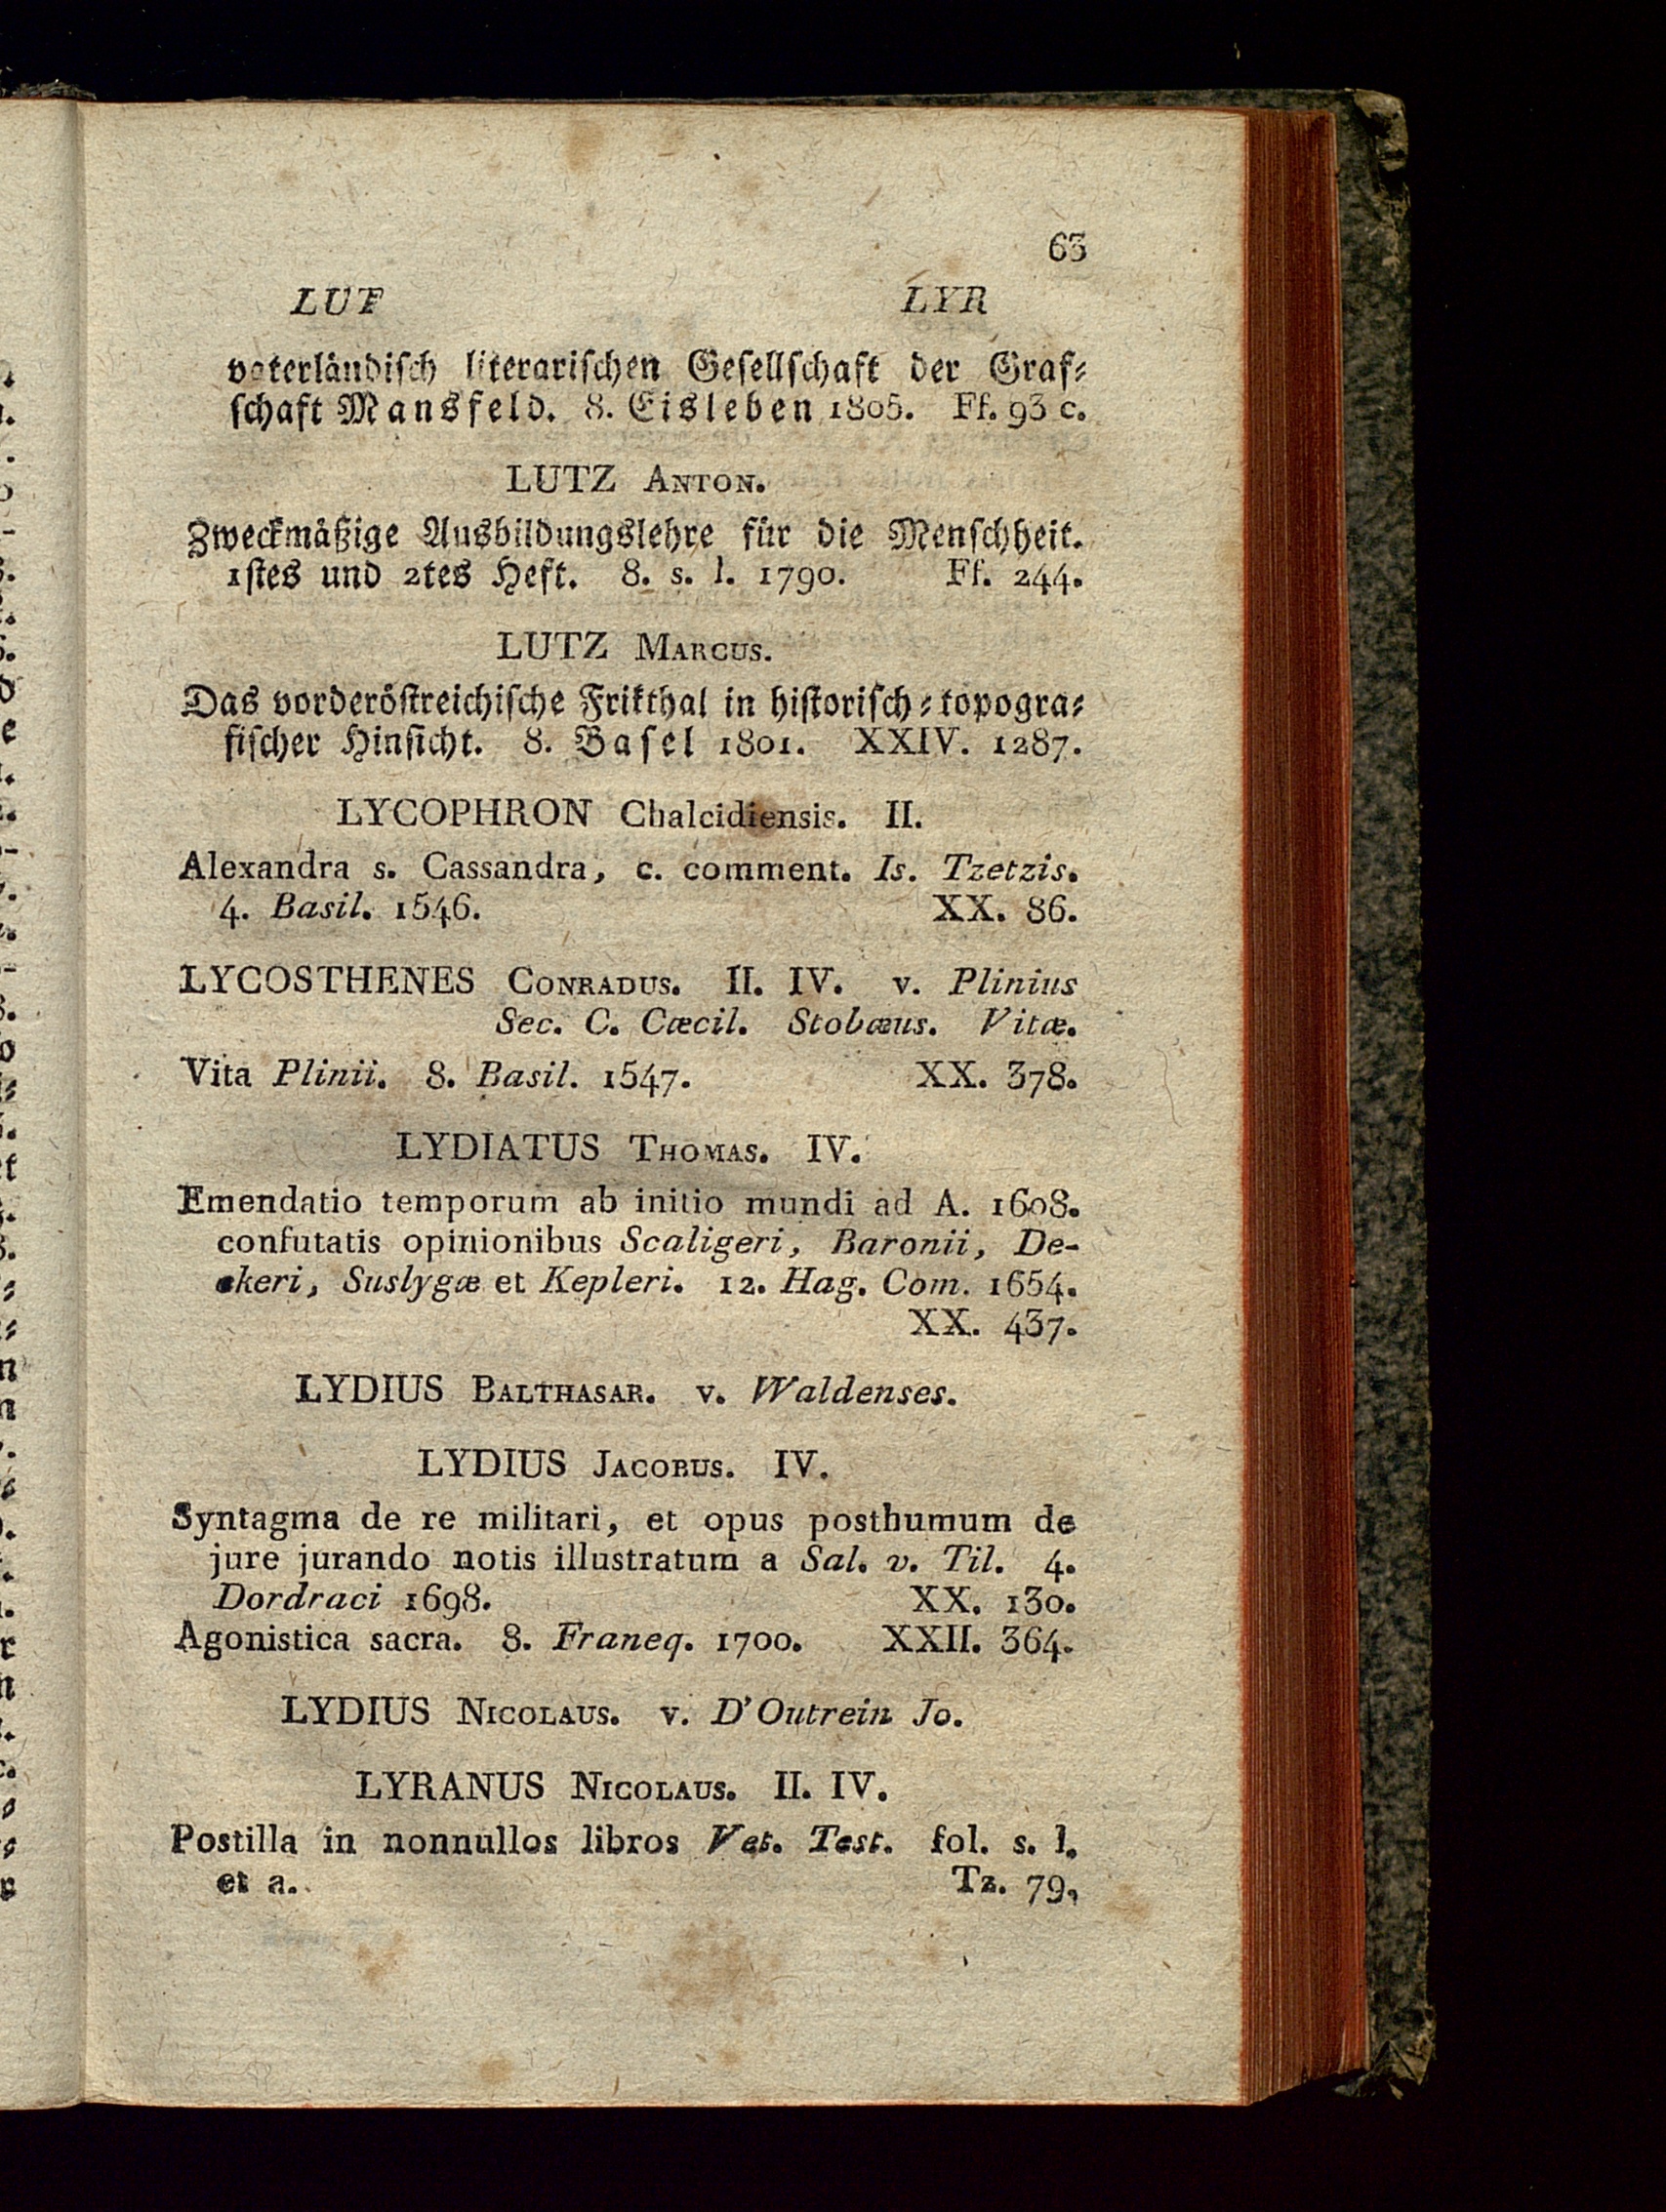 63
LUT LYR
vaterländisch literarischen Gesellschaft der Graf⸗
schaft Mansfeld. 8. Eisleben 1805. Ff. 93 c.
LUTZ ANTON.
Zweckmäßige Ausbildungslehre für die Menschheit.
1stes und 2tes Heft. 8. s. l. 1790. Ff. 244.
LUTZ MARCUS.
Das vorderöstreichische Frikthal in historisch⸗topogra⸗
fischer Hinsicht. 8. Basel 1801. XXIV. 1287.
LYCOPHRON Chalcidiensis. II.
Alexandra s. Cassandra, c. comment. Is. Tzetzis.
4. Basil. 1546. XX. 86.
LYCOSTHENES CONRADUS. II. IV. v. Plinius
Sec. C. Cæcil. Stobæus. Vitæ.
Vita Plinii. 8. Basil. 1547. XX. 378.
LYDIATUS THOMAS. IV.
Emendatio temporum ab initio mundi ad A. 1608.
confutatis opinionibus Scaligeri, Baronii, De-
ckeri, Suslygæ et Kepleri. 12. Hag. Com. 1654.
XX. 437.
LYDIUS BALTHASAR. v. Waldenses.
LYDIUS JACOBUS. IV.
Syntagma de re militari, et opus posthumum de
jure jurando notis illustratum a Sal. v. Til. 4.
Dordraci 1698. XX. 130.
Agonistica sacra. 8. Franeq. 1700. XXII. 364.
LYDIUS NICOLAUS. v. D'Outrein Jo.
LYRANUS NICOLAUS. II. IV.
Postilla in nonnullos libros Vet. Test. fol. s. l.
et a. Tz. 79.